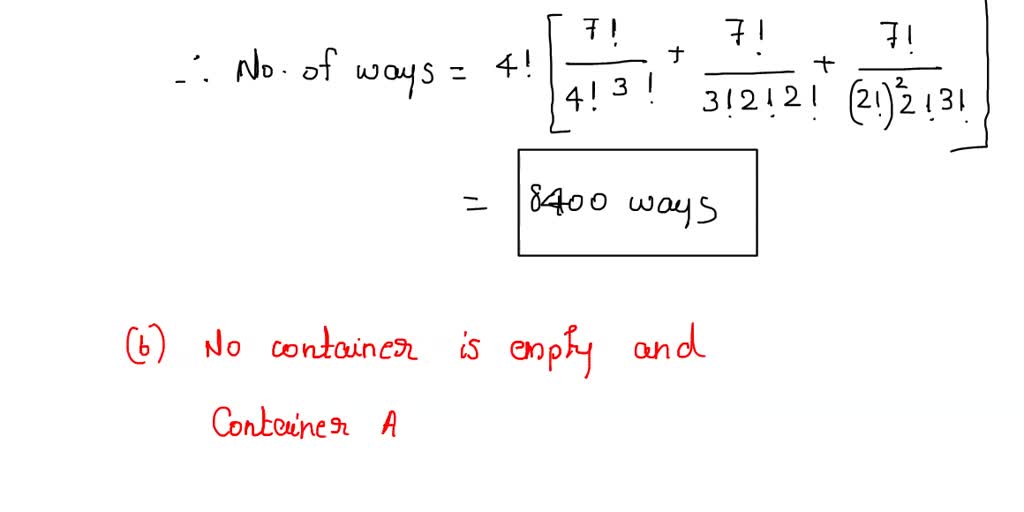 ∴ No. of ways = 4! [ 7! / 4! 3! + 7! / 3! 2! 2! + 7! / (2!)² 2! 3! ]
= 8400 ways
(b) No container is empty and
Container A